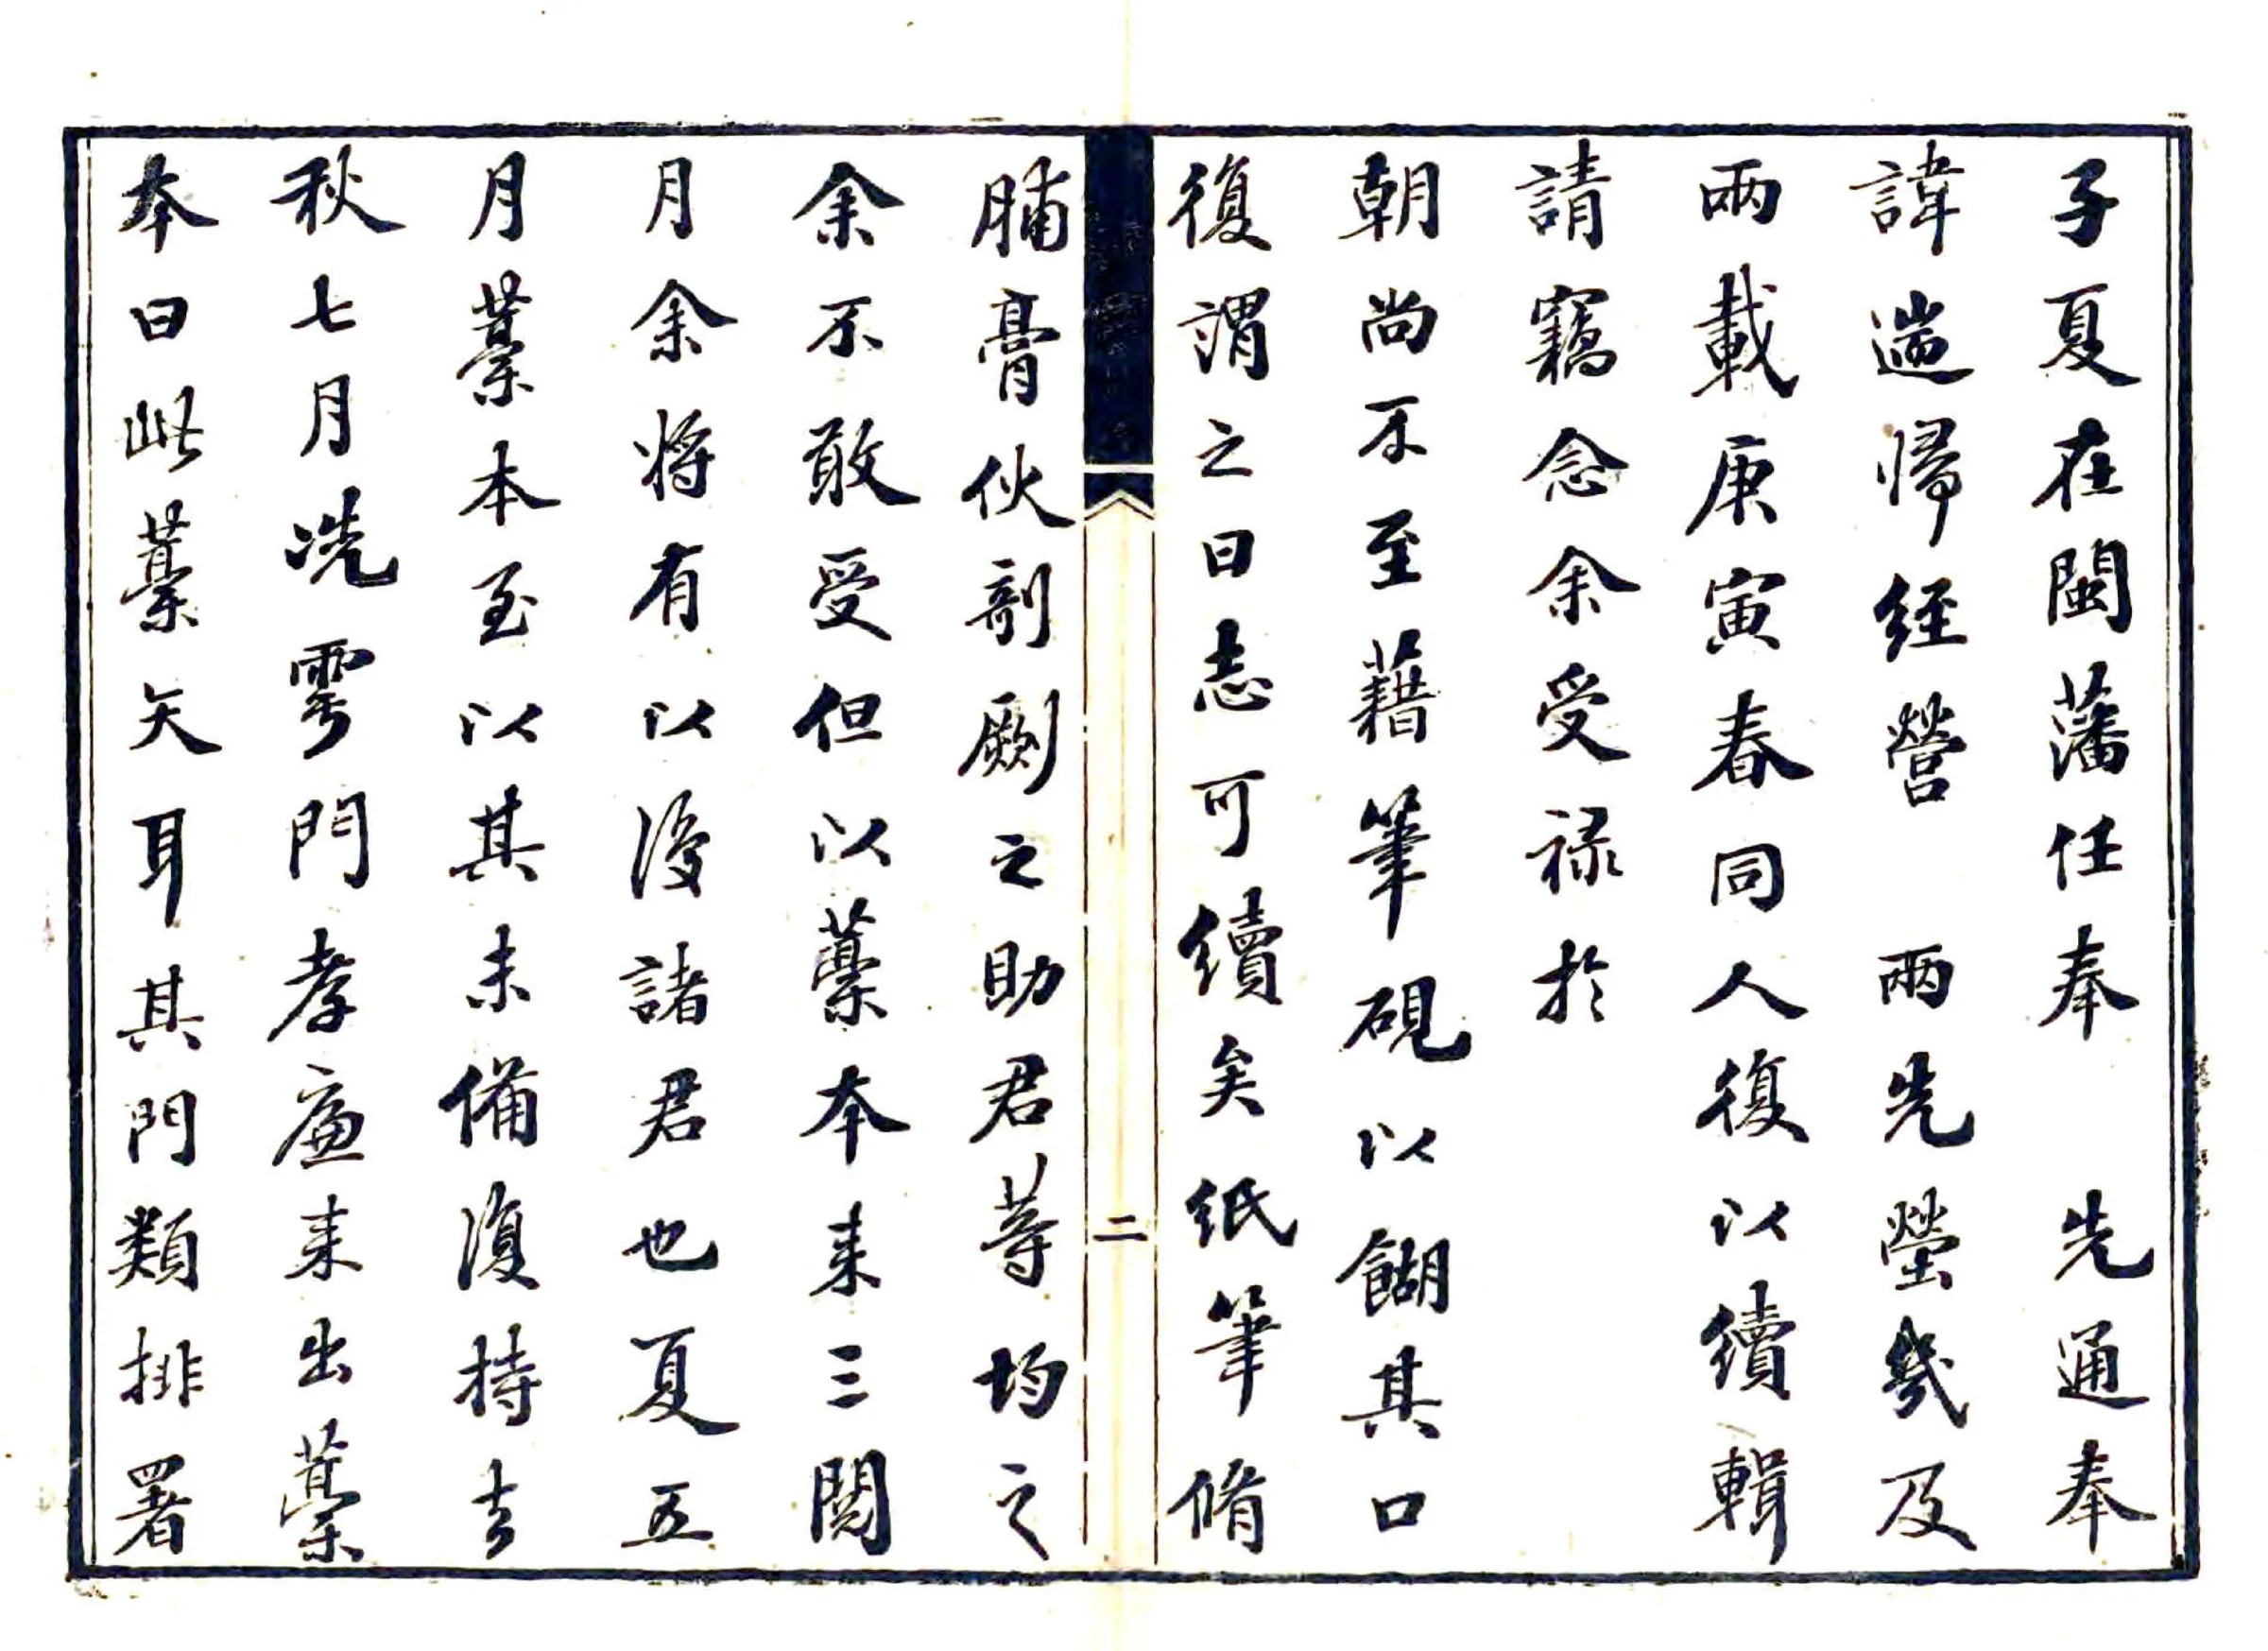 子夏在閩藩任奉　先通奉
諱遄歸經營　兩先塋幾及
兩載庚寅春同人復以續輯
請竊念余受祿於
朝尚不至藉筆硯以餬其口
復謂之曰志可續矣紙筆脩
脯膏伙剞劂之助君等均之
余不敢受但以藁本来三閱
月余將有以復諸君也夏五
月藁本至以其未備復持去
秋七月冼雩門孝廉来出藁
本曰此藁矢耳其門類排署
二